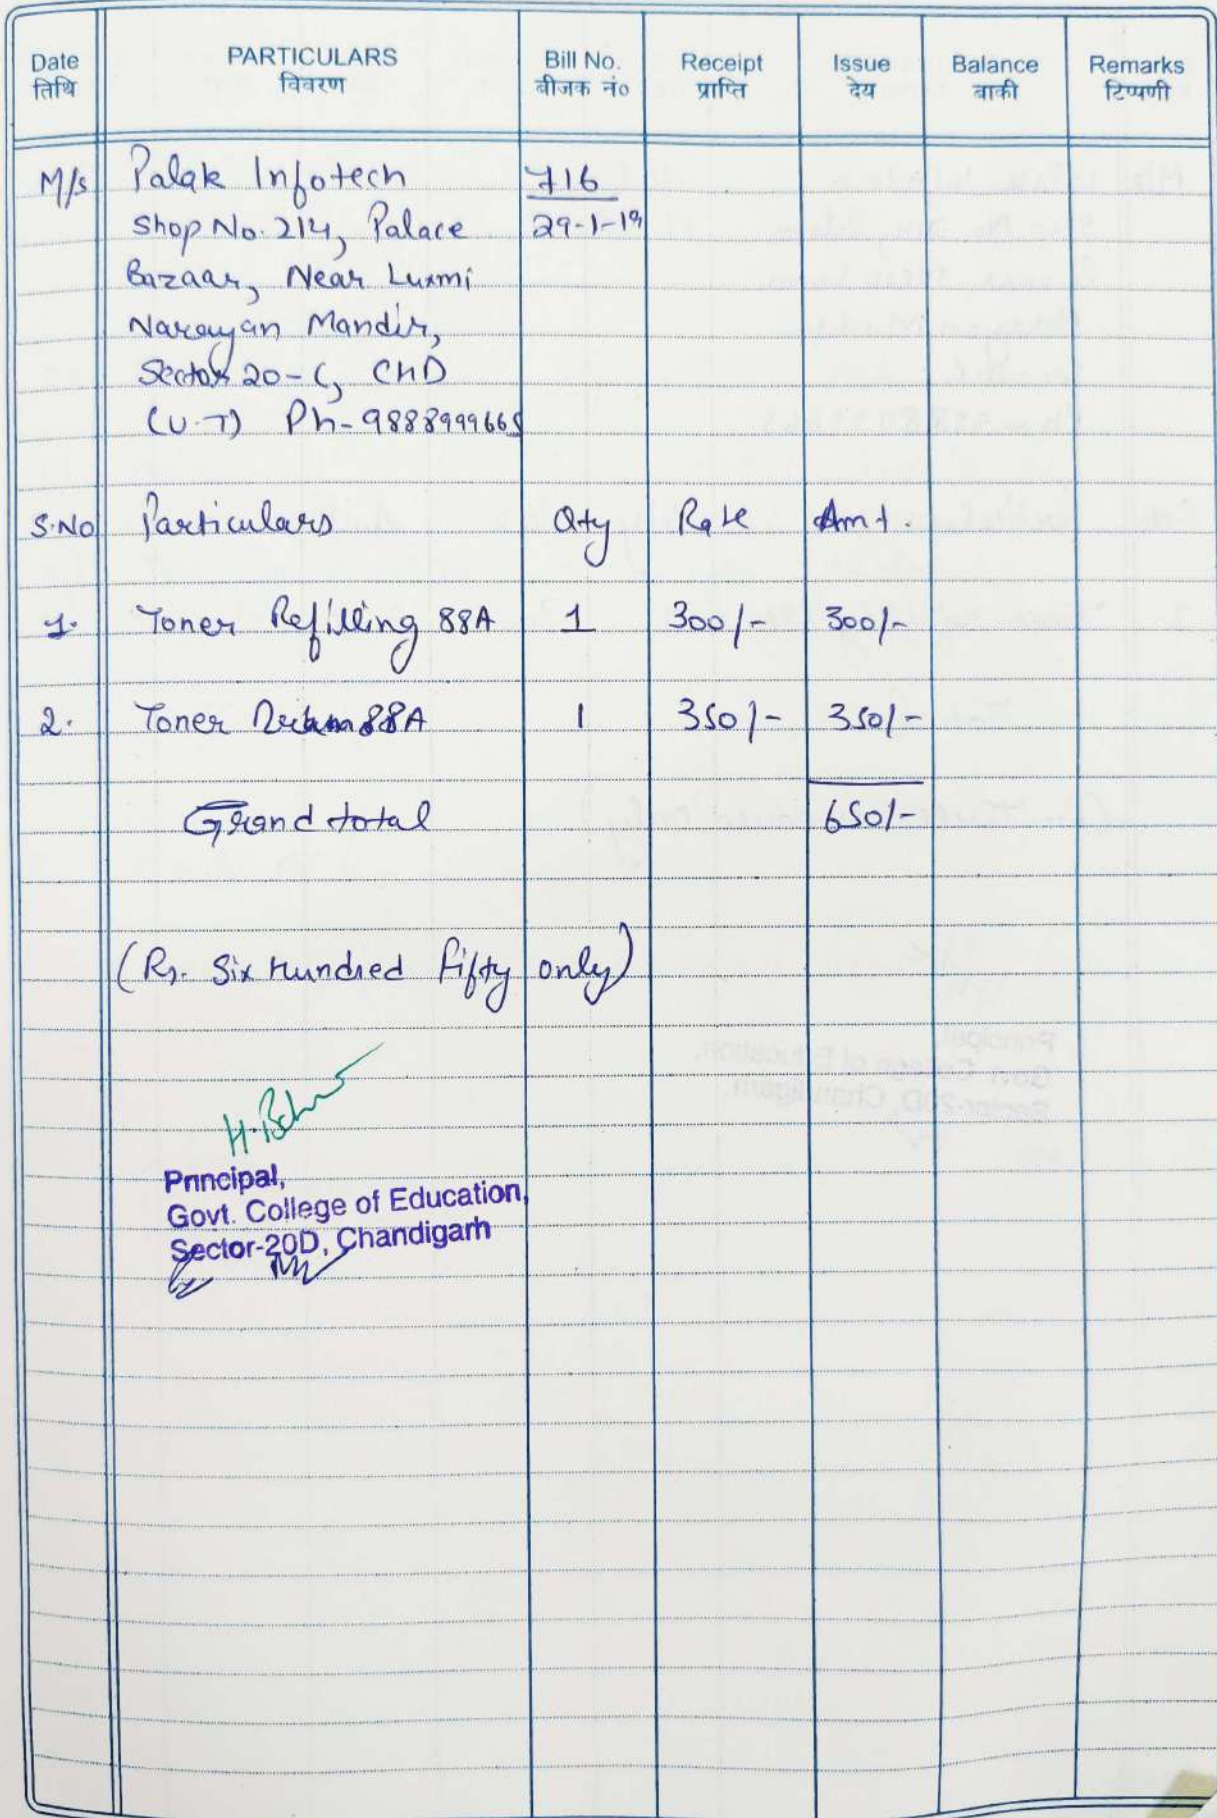 Date PARTICULARS Bill No. Receipt Issue Balance Remarks
तिथि विवरण बीजक नं० प्राप्ति देय बाकी टिप्पणी
M/s Palak Infotech 716
Shop No. 214, Palace 29-1-19
Bazaar, Near Luxmi
Narayan Mandir,
Sector 20-C, CHD
(U.T) Ph-9888999665
S.No Particulars Qty Rate Amt.
1. Toner Refilling 88A 1 300/- 300/-
2. Toner Drum 88A 1 350/- 350/-
Grand total 650/-
(Rs. Six Hundred Fifty only)
Principal,
Govt. College of Education,
Sector-20D, Chandigarh